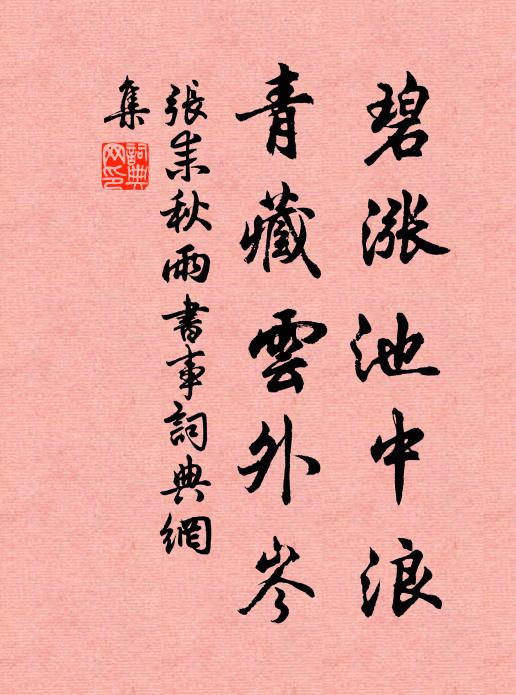 碧漲池中浪
青藏雲外岑
張耒秋雨書事詞典網
集
詞典
网印